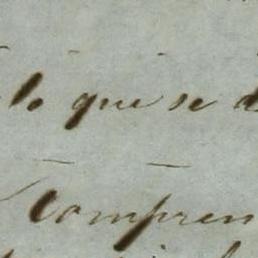 lo que se
Compren